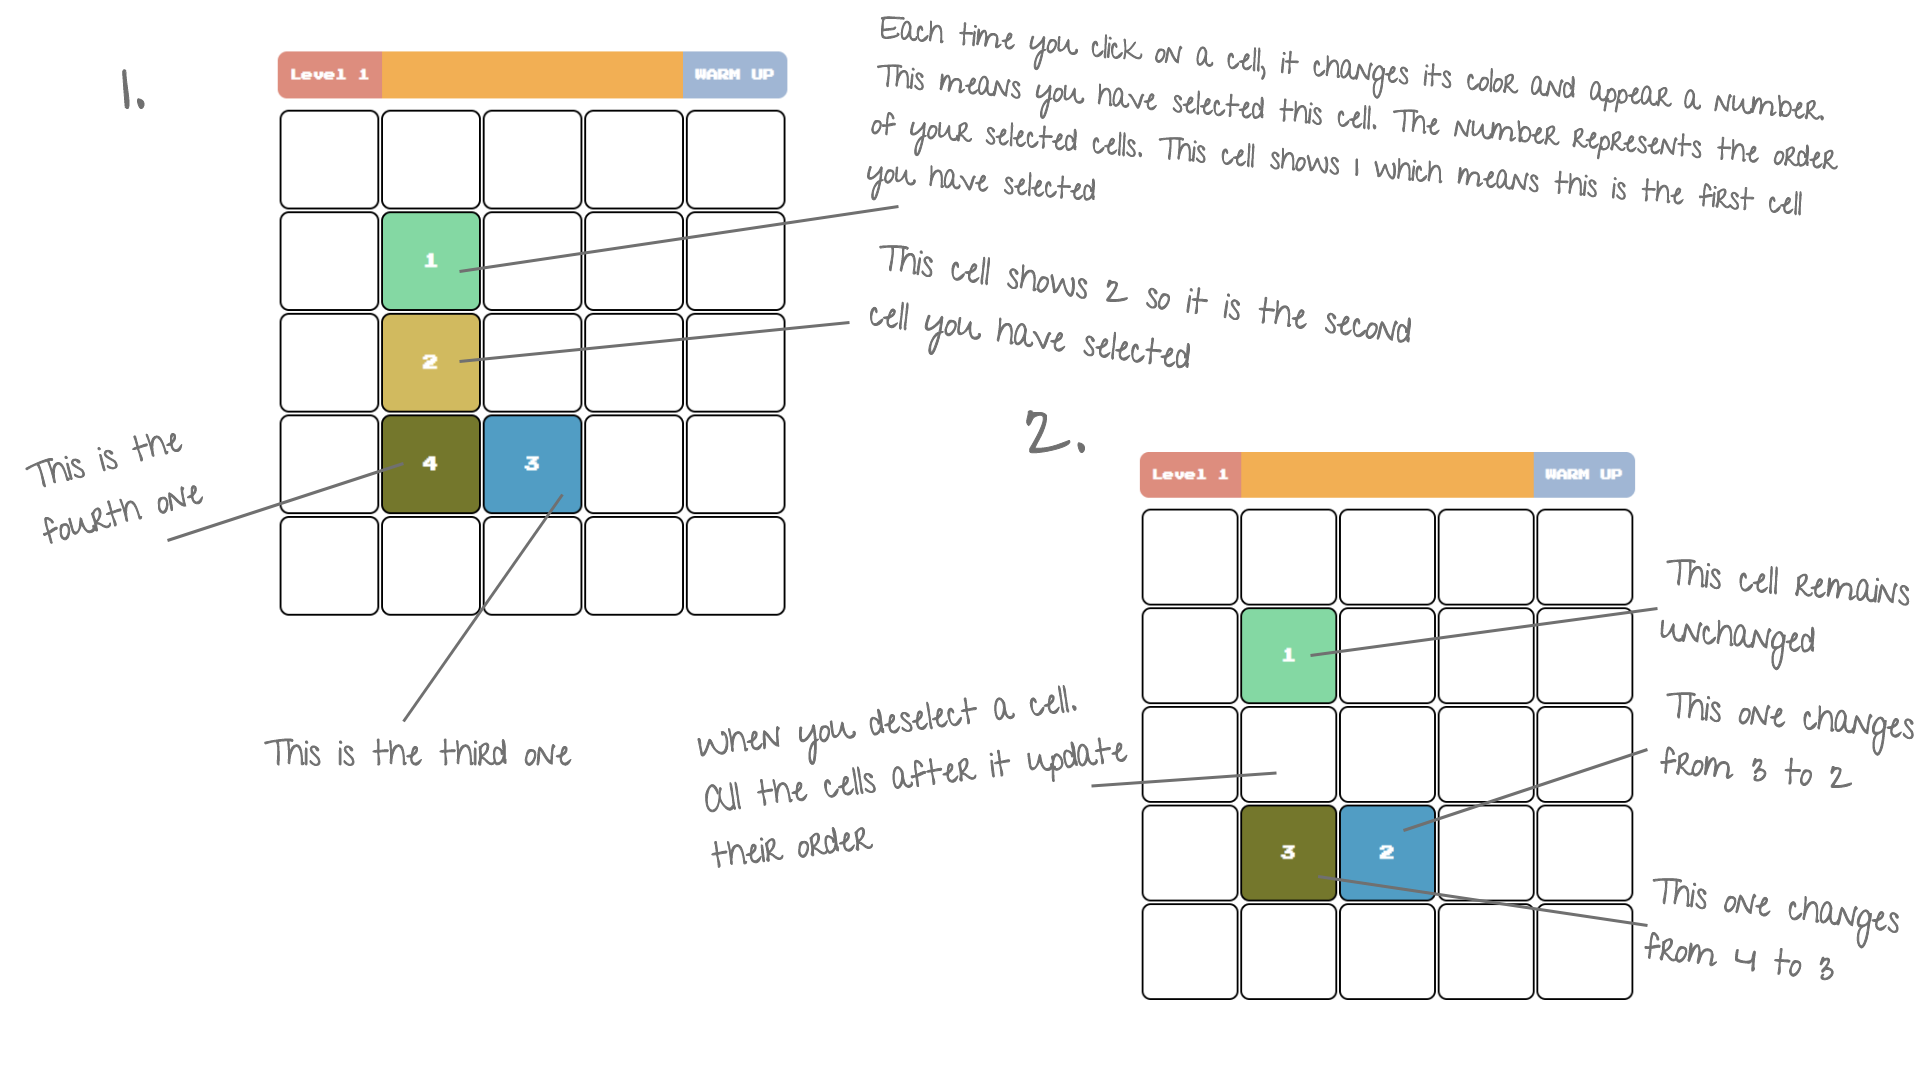 1.
Level 1
WARM UP
1
2
4
3
Each time you click on a cell, it changes its color and appear a number.
This means you have selected this cell. The number represents the order
of your selected cells. This cell shows 1 which means this is the first cell
you have selected
This cell shows 2 so it is the second
cell you have selected
This is the
fourth one
This is the third one
2.
Level 1
WARM UP
1
3
2
This cell remains
unchanged
This one changes
from 3 to 2
When you deselect a cell.
All the cells after it update
their order
This one changes
from 4 to 3